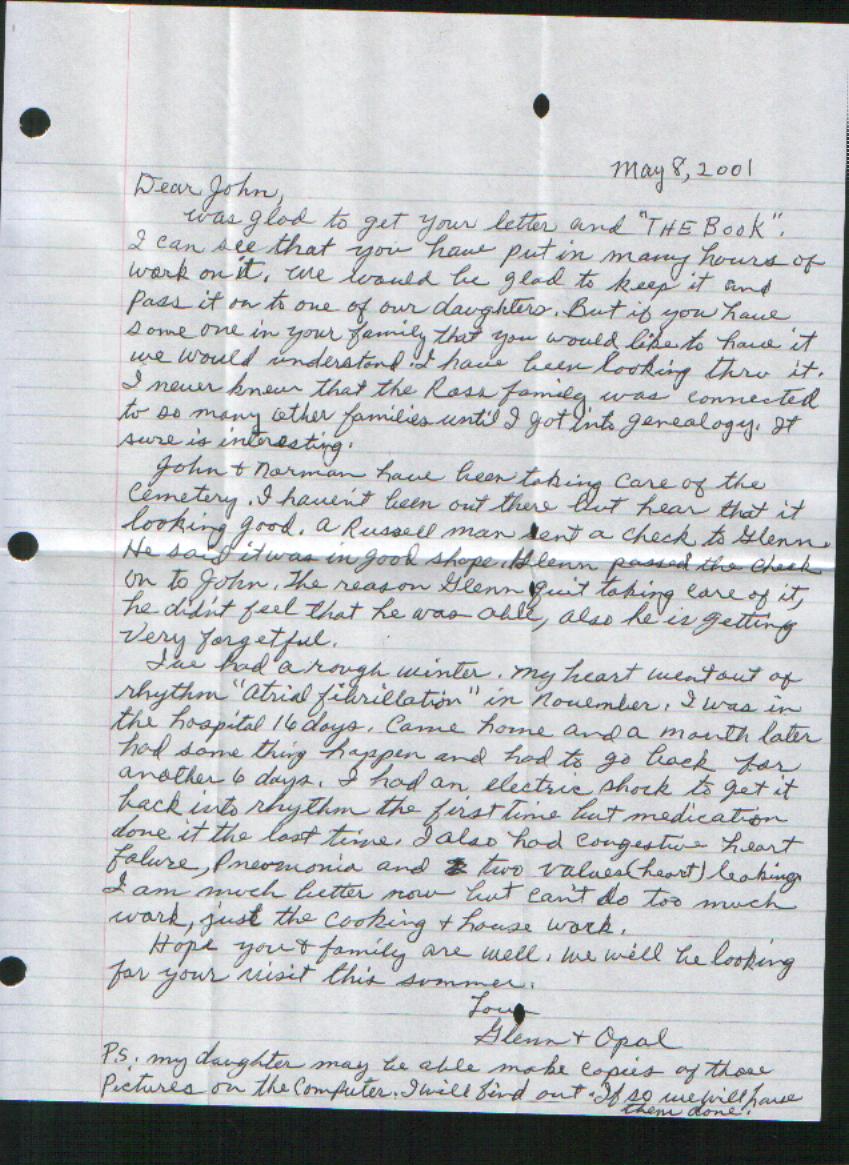 May 8, 2001
Dear John,
was glad to get your letter and "THE BOOK".
I can see that you have put in many hours of
work on it. We would be glad to keep it and
pass it on to one of our daughters. But if you have
some one in your family that you would like to have it
we would understand. I have been looking thru it.
I never knew that the Ross family was connected
to so many other families until I got into genealogy. It
sure is interesting.
John + Norman have been taking care of the
cemetery. I haven't been out there but hear that it
looking good. A Russell man sent a check to Glenn.
He said it was in good shape. Glenn passed the check
on to John. The reason Glenn quit taking care of it,
he didn't feel that he was able, also he is getting
very forgetful.
I've had a rough winter. My heart went out of
rhythm "atrial fibrillation" in November. I was in
the hospital 16 days. Came home and a month later
had same thing happen and had to go back for
another 6 days. I had an electric shock to get it
back into rhythm the first time but medication
done it the last time. I also had congestive heart
falure, Pneomonia and two valves (heart) leaking
I am much better now but can't do too much
work, just the cooking + house work.
Hope you + family are well. We will be looking
for your visit this summer.
Love
Glenn + Opal
P.S. My daughter may be able make copies of those
Pictures on the Computer. I will find out. If so we will have
them done.